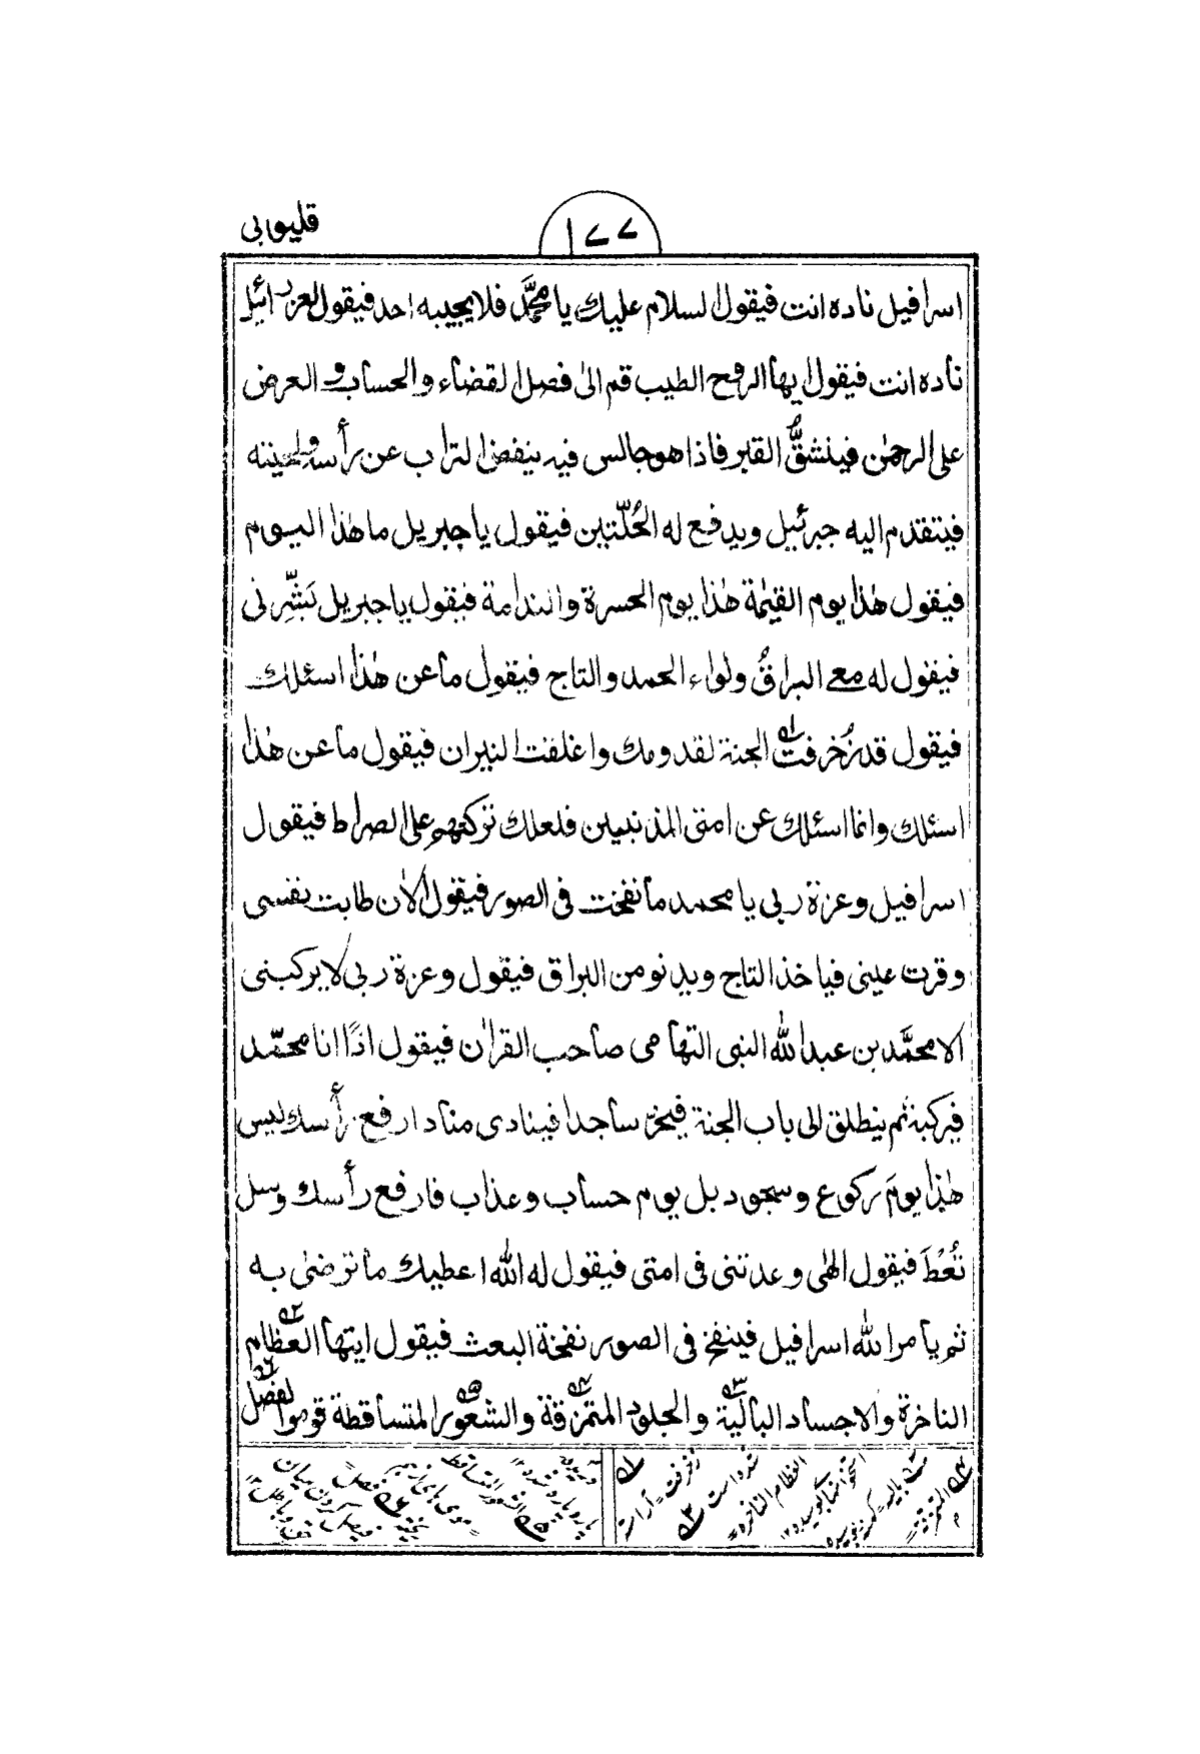 قليوبى
١٧٧
اسرافيل ناده انت فيقول السلام عليك يا محمَّد فلا يجيبه احد فيقول لعزرائيل
ناده انت فيقول ايها الروح الطيب قم الى فصل القضاء والحساب والعرض
على الرحمٰن فينشقُّ القبر فاذا هو جالس فيه ينفض التراب عن رأسه ولحيته
فيتقدم اليه جبرئيل ويدفع له الحُلّتين فيقول يا جبريل ما هٰذا اليوم
فيقول هٰذا يوم القيٰمة هٰذا يوم الحسرة والندامة فيقول يا جبريل بَشِّرنى
فيقول له معے البراقُ ولواء الحمد والتاج فيقول ما عن هٰذا اسئلك
فيقول قد زُخرفت الجنة لقدومك واغلقت النيران فيقول ما عن هٰذا
اسئلك وانما اسئلك عن امتى المذنبين فلعلك تركتهم على الصراط فيقول
اسرافيل وعزة ربى يا محمد ما نفخت فى الصور فيقول الاٰن طابت نفسى
وقرت عينى فياخذ التاج ويدنو من البراق فيقول وعزة ربى لا يركبنى
الا محمَّد بن عبد الله النبى التهامى صاحب القراٰن فيقول اذًا انا محمّد
فيركبه ثم ينطلق الى باب الجنة فيخرّ ساجدا فينادى مناد ارفع رأسك ليس
هٰذا يومَ ركوع وسجود بل يوم حساب وعذاب فارفع رأسك وسل
تُعْطَ فيقول الهٰى وعدتنى فى امتى فيقول له الله اعطيك ما ترضىٰ به
ثم يأمر الله اسرافيل فينفخ فى الصور نفخة البعث فيقول ايتها العظام
الناخرة والاجساد البالية والجلود المتمزقة والشعور المتساقطة قوموا لفصل